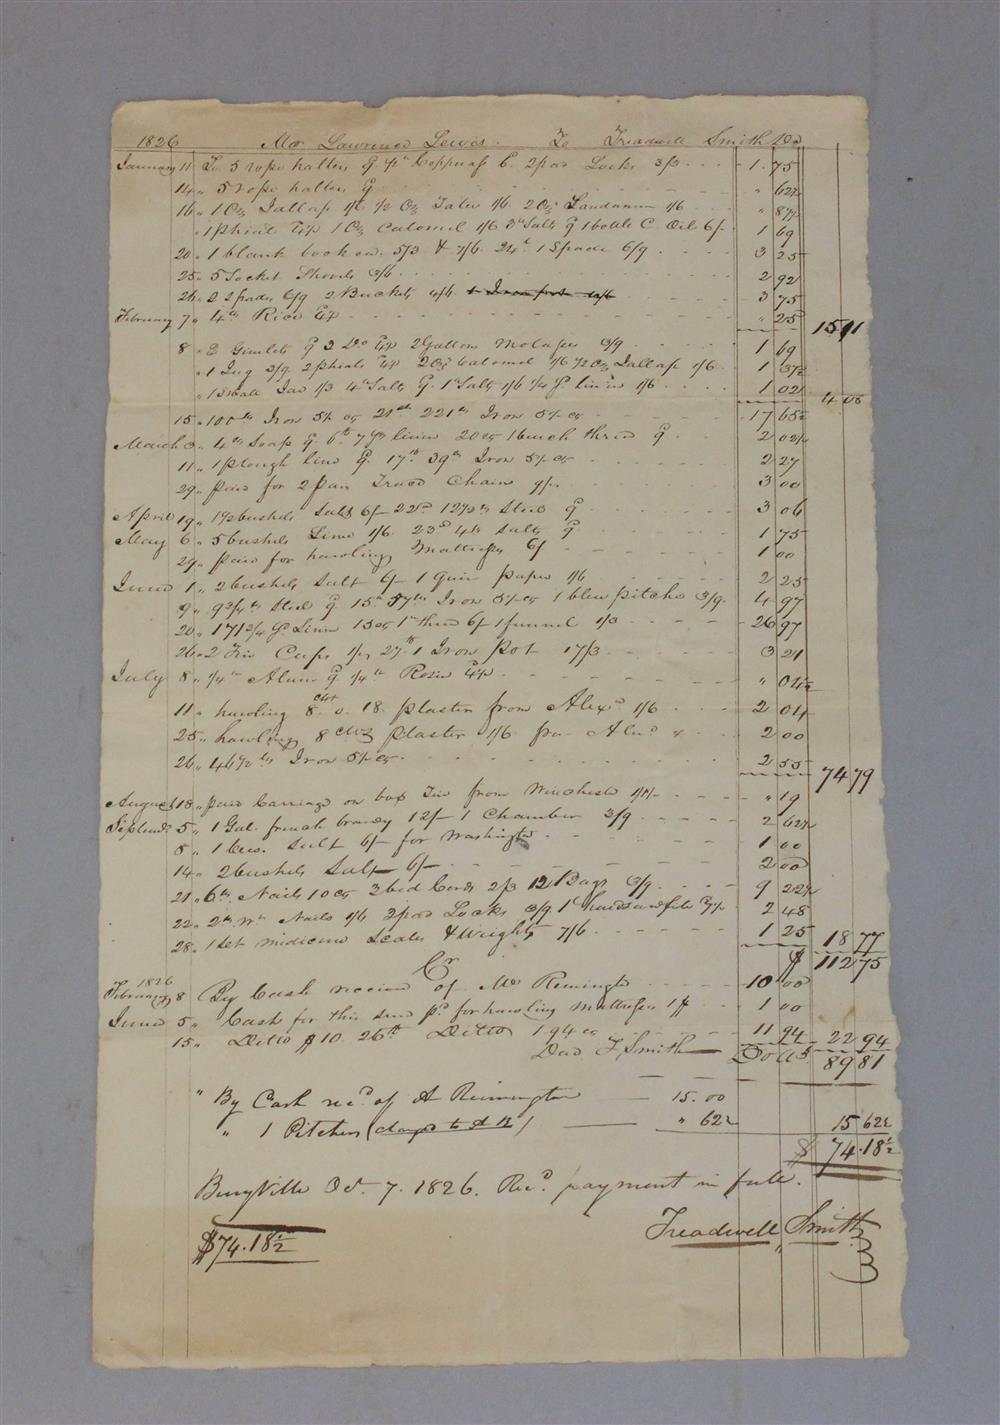 1826 Mr Lawrence Lewis. To Treadwell Smith Dr
January 11 To 5 rope halters 2 pad Locks 3/3 1.75
14 " 5 rope halters " 62½
16 " 1 Oz Jallap 1/6 ½ Oz 1/6 2 Oz Laudanum 1/6 " 87½
" 1 phial 1 Oz Calomel 1/6 Salts 1 bottle C. Oil 6/ 1 69
20 " 1 blank book 5/3 & 7/6 24th 1 Spade 6/9 3 25
25 " 5 Socket Shovels 3/6 2 92
26 " 2 Spades 6/9 2 Buckets 4/6 3 75
February 7 " 4 lb Rice " 25 15 11
8 " 2 Gimlets 2 Do 2 Gallons Molasses 3/9 1 69
" 1 Jug 3/9 2 phials 2 Oz Calomel 1/6 ½ Oz Jallap 1/6 1 37½
" 1 Small Jar 1/3 4 lb Salts 1 lb Salts 1/6 1/6 1 02½ 4 08
15 " 100 lb Iron 21st 221 lb Iron 17 65½
March 3 " 4 lb Soap 6th 7 yds linen 20 cts thread 2 02½
11 " 1 plough line 17th 39 lb Iron 2 27
29 " paid for 2 pair Trace Chains 9/ 3 00
April 19 " 1½ bushels Salt 6/ 22d 12½ lb Steel 3 06
May 6 " 5 bushels Lime 1/6 23d 4 lb Salts 1 75
29 " paid for hawling Mattresses 6/ 1 00
June 1 " 2 bushels Salt 6/ 1 Quire paper 1/6 2 25
9 " 9¾ lb Steel 15th 57 lb Iron 1 blue pitcher 3/9 4 97
20 " 171¾ yds Linen 15 cts thread 6/ 1 funnel 1/3 26 97
26 " 2 Tin Cups 27th 1 Iron Pot 17/3 3 21
July 8 " ¼ lb Alum ¼ lb Rosin " 04½
11 " hawling 8 cwt 0. 18. plaster from Alexa 1/6 2 04
25 " hawling 8 cwt plaster 1/6 from Alexa 2 00
26 " 46½ lb Iron 2 55 74 79
August 18 " paid Carriage on box Tin from Winchester " 19
September 5 " 1 Gal. french brandy 12/ 1 Chamber 3/9 2 62½
8 " 1 bus. Salt 6/ for Washington 1 00
14 " 2 bushels Salt 6/ 2 00
21 " 6 lb Nails 10 cts 3 bed Cords 2/3 12 Bags 3/9 9 22½
22 " 2 lb Nails 1/6 2 pad Locks 3/9 1 handsaw file 2 48
28 " 1 Set medicine Scales & Weights 7/6 1 25 18 77
Cr $ 112 75
1826
February 8 By Cash received of Mr Remington 10 00
June 5 " Cash for this sum pd for hawling mattresses 1$ 1 00
15 " Ditto $10. 26th Ditto 1.94 cts 11 94 22 94
Due T. Smith 89 81
" By Cash recd of A Remington 15.00
" 1 Pitcher (charged to A R) " 62½ 15 62½
$ 74.18½
Berryville Oct. 7. 1826. Recd payment in full.
Treadwell Smith
$74.18½